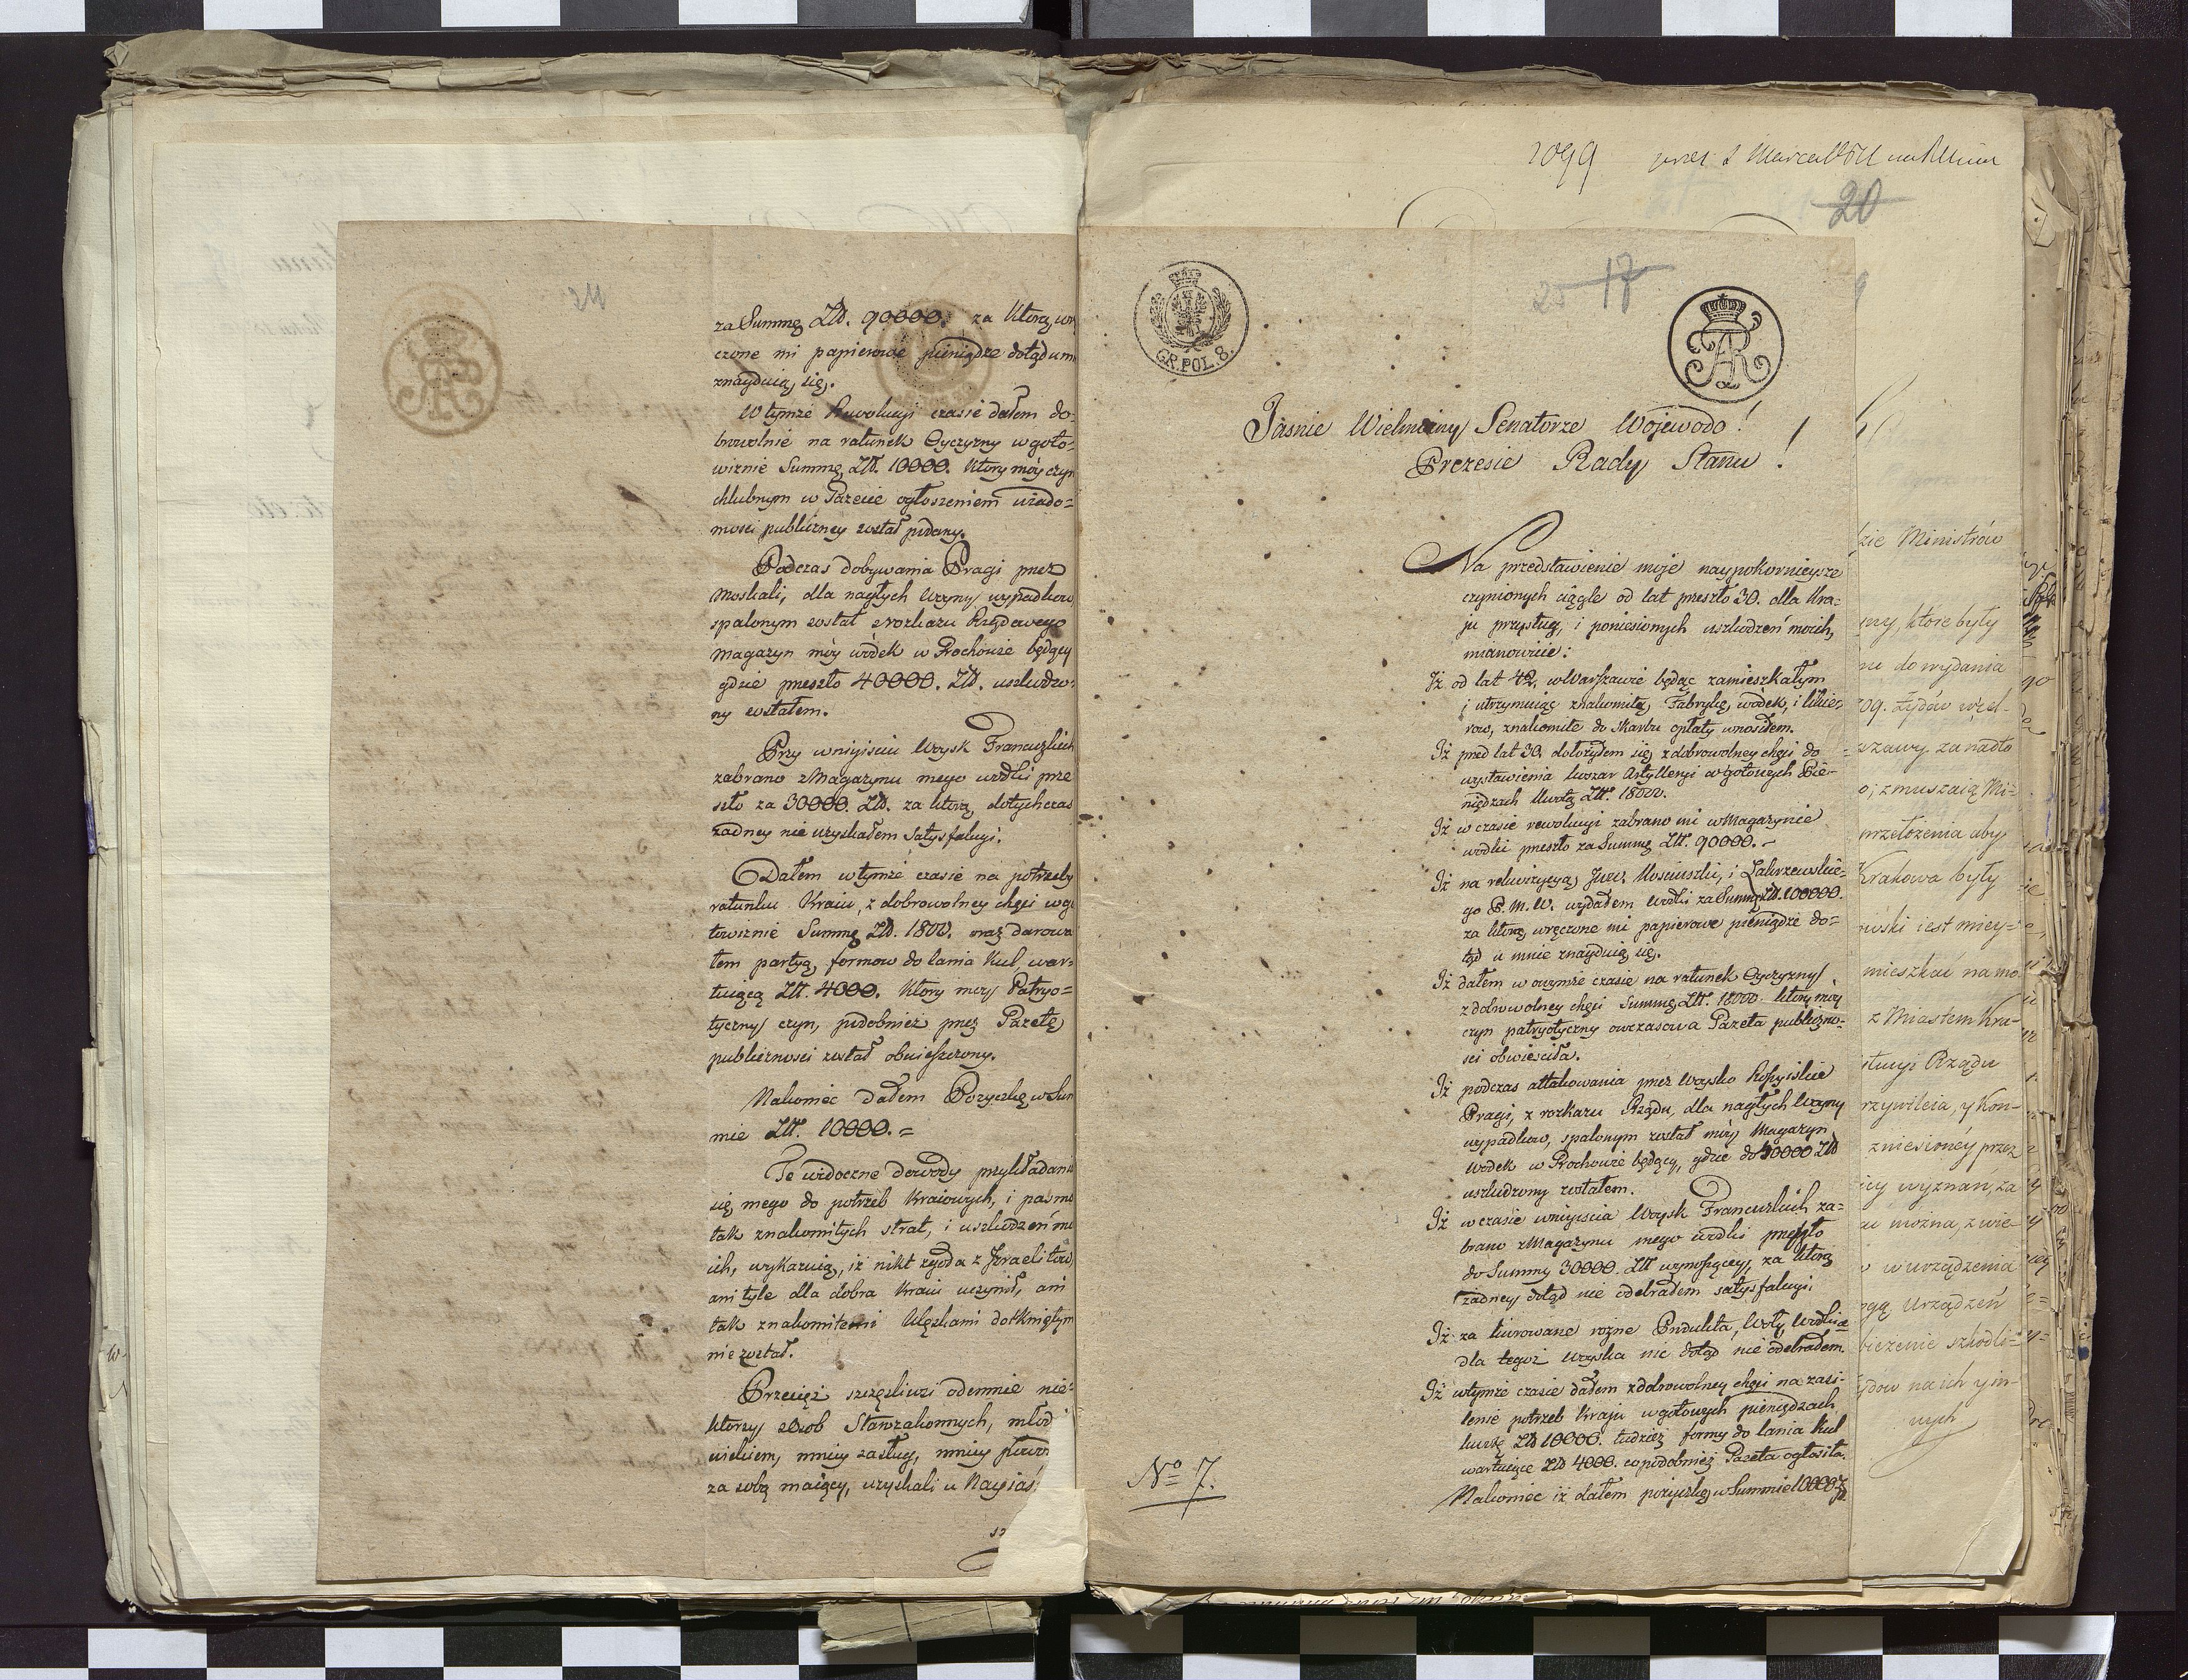 za Summę Złł. 90000. za Którą
czone mi papierowe pieniądze dotąd
znayduią się.
W tymże Rewolucyi czasie dałem do=
browolnie na ratunek Oyczyzny w goto=
wiznie Summę Złł. 10000. Który móy czyn
chlubnym w Gazecie ogłoszeniem wiado=
mości publiczney został podany.
Podczas dobywania Pragi przez
Moskali, dla nagłych Woyny wypadkow
spalonym został z rozkazu Rządowego
Magazyn móy wódek w Prochowie będący
gdzie przeszło 40000. Złł. uszkodzo=
ny zostałem.
Przy wniyściu Woysk Francuzkich
zabrano z Magazynu mego wódki prze
szło za 30000. Złł. za którą dotychczas
żadney nie uzyskałem satysfakcyi.
Dałem w tymże czasie na potrzeby
ratunku Kraiu, z dobrowolney chęci w go
towiznie Summę Złł. 1800. oraz darowa
łem partyą formow do lania Kul, war=
tuiącą Złł. 4000. Który moy Patryo=
tyczny czyn, podobnież przez Gazetę
publiczności został obwieszczony.
Nakoniec dałem Pożyczkę w Sum
mie Złł. 10000.=
Te widoczne dowody przykładania
się mego do potrzeb Kraiowych, i
tak znakomitych strat, i uszkodzeń mo
ich, wykazuią, iż nikt zgoła z Izraelitów
ani tyle dla dobra Kraiu uczynił, ani
tak znakomitemi Klęskami dotkniętym
nie został.
Przecięż szczęśliwsi odemnie nie=
którzy Osob Starozakonnych, młod
wiekiem, mniey zasług, mniey
za sobą maiący, uzyskali u Nayias
1099
20
17
GR. POL. 8.
Jaśnie Wielmożny Senatorze Wojewodo!
Prezesie Rady Stanu!
Na przedstawienie moje naypokornieysze
czynionych ciągle od lat przeszło 30. dla Kra=
ju przysług, i poniesionych uszkodzeń moich,
mianowicie:
Iż od lat 42. w Warszawie będąc zamieszkałym
i utrzymuiąc znakomitą Fabrykę wódek, i likie=
row, znakomite do Skarbu opłaty wnosiłem.
Iż przed lat 30. dołożyłem się z dobrowolney chęci do
wystawienia koszar Artylleryi w gotowych Pie=
niędzach Kwotę Złł. 18000.
Iż w czasie rewolucyi zabrano mi w Magazynie
wódki przeszło za Summę Złł. 90000.-
Iż na rekwizycyą Kosciuszki, i Zakrzewskie=
go P. M. W. wydałem wódki za Summę Złł. 100000.
za którą wręczone mi papierowe pieniądze do=
tąd u mnie znayduią się.
Iż dałem w owymże czasie na ratunek Oyczyzny
z dobrowolney chęci Summę Złł. 18000. który móy
czyn patryotyczny owczasowa Gazeta publiczno=
sci obwieściła.
Iż podczas attakowania przez Woysko Rossyiskie
Pragi, z rozkazu Rządu, dla nagłych Woyny
wypadkow, spalonym został móy Magazyn
Wódek w Prochowie będący, gdzie do 40000 Złł
uszkodzony zostałem.
Iż w czasie wniyscia Woysk Francuzkich za=
brano z Magazynu mego wódki przeszło
do Summy 30000. Złł wynoszącey, za którą
żadney dotąd nie odebrałem satysfakcyi.
Iż za liwrowane rożne Produkta, Woły, Wódkę
dla tegoż Woyska nic dotąd nie odebrałem.
Iż w tymże czasie dałem z dobrowolney chęci na zasi=
lenie potrzeb Kraju w gotowych pieniędzach
kwotę Złł 10000. tudzież formy do lania Kul
wartuiące Złł 4000. co podobnież Gazeta ogłosiła.
Nakoniec iż dałem pożyczkę w Summie 10000 Zł.
No 7.
zie Ministrów
które były
do wydania
09. Żydów
szawy, za nadto
o; zmuszaią Mi=
przełożenia aby
Krakowa były
iest miey=
mieszkać na mo
z Miastem Kra=
Rządu
rzywileia, y Kon=
zniesionéy przez
wyznań, za
można, z wie
w urządzenia
Urządzeń
bieczenie szkodli=
ydow na ich y in=
nych